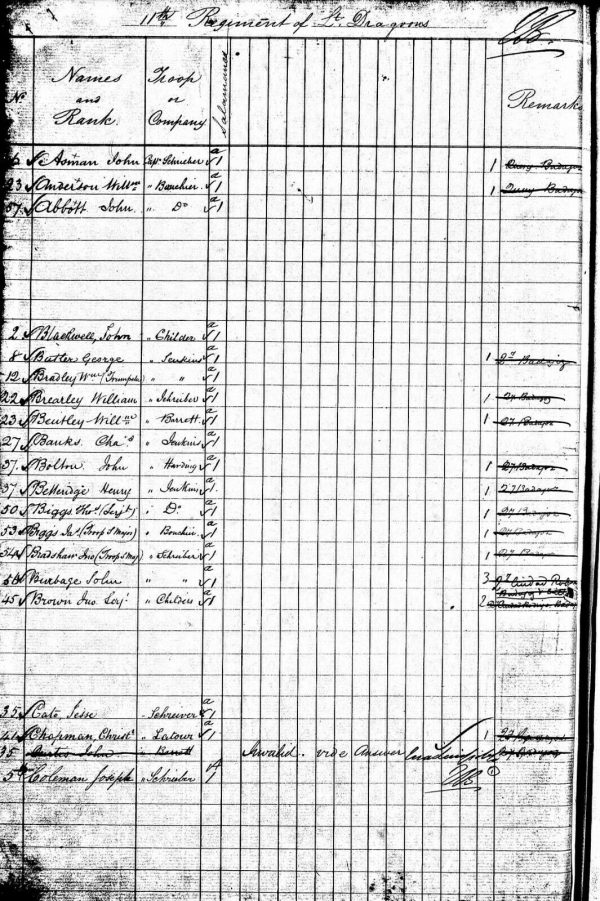 11th Regiment of Lt. Dragoons
No. Names and Rank. Troop or Company Salamanca Remarks
Asman John Capt. Schreiber a 1 1 Badajoz
23 Anderson Willm " Bouchier a 1 1 Badajoz
57 Abbott John " Do a 1
2 Blackwell, John " Childers a 1
8 Butler George " Jenkins a 1 1 2d Badajoz
12 Bradley Wm (Trumpeter) " " a 1
22 Brearley William " Schreiber a 1 1 2d Badajoz
23 Bentley Willm " Barrett a 1 1 2d Badajoz
27 Banks Chas " Jenkins a 1
37. Bolton John " Harding a 1 1 2d Badajoz
37 Betteridge Henry " Jenkins a 1 1 2d Badajoz
50 Biggs Thos (Serjt) " Do a 1 1 2d Badajoz
53 Biggs Jas (Troop S Major) " Bouchier a 1 1 2d Badajoz
54 Bradshaw Jno (Troop S Maj) " Schreiber a 1 1 2d Badajoz
Burbage John " " a 1 3 2d Ciudad Rod
Badajoz
45 Brown Jno Serjt " Childers a 1 2
35 Cato, Jesse Schreiber a 1
41 Chapman, Christr " Latour a 1 1 2d Badajoz
35 Curtis John " Barrett Invalid. vide Answer
5 Coleman Joseph " Schrieber 1